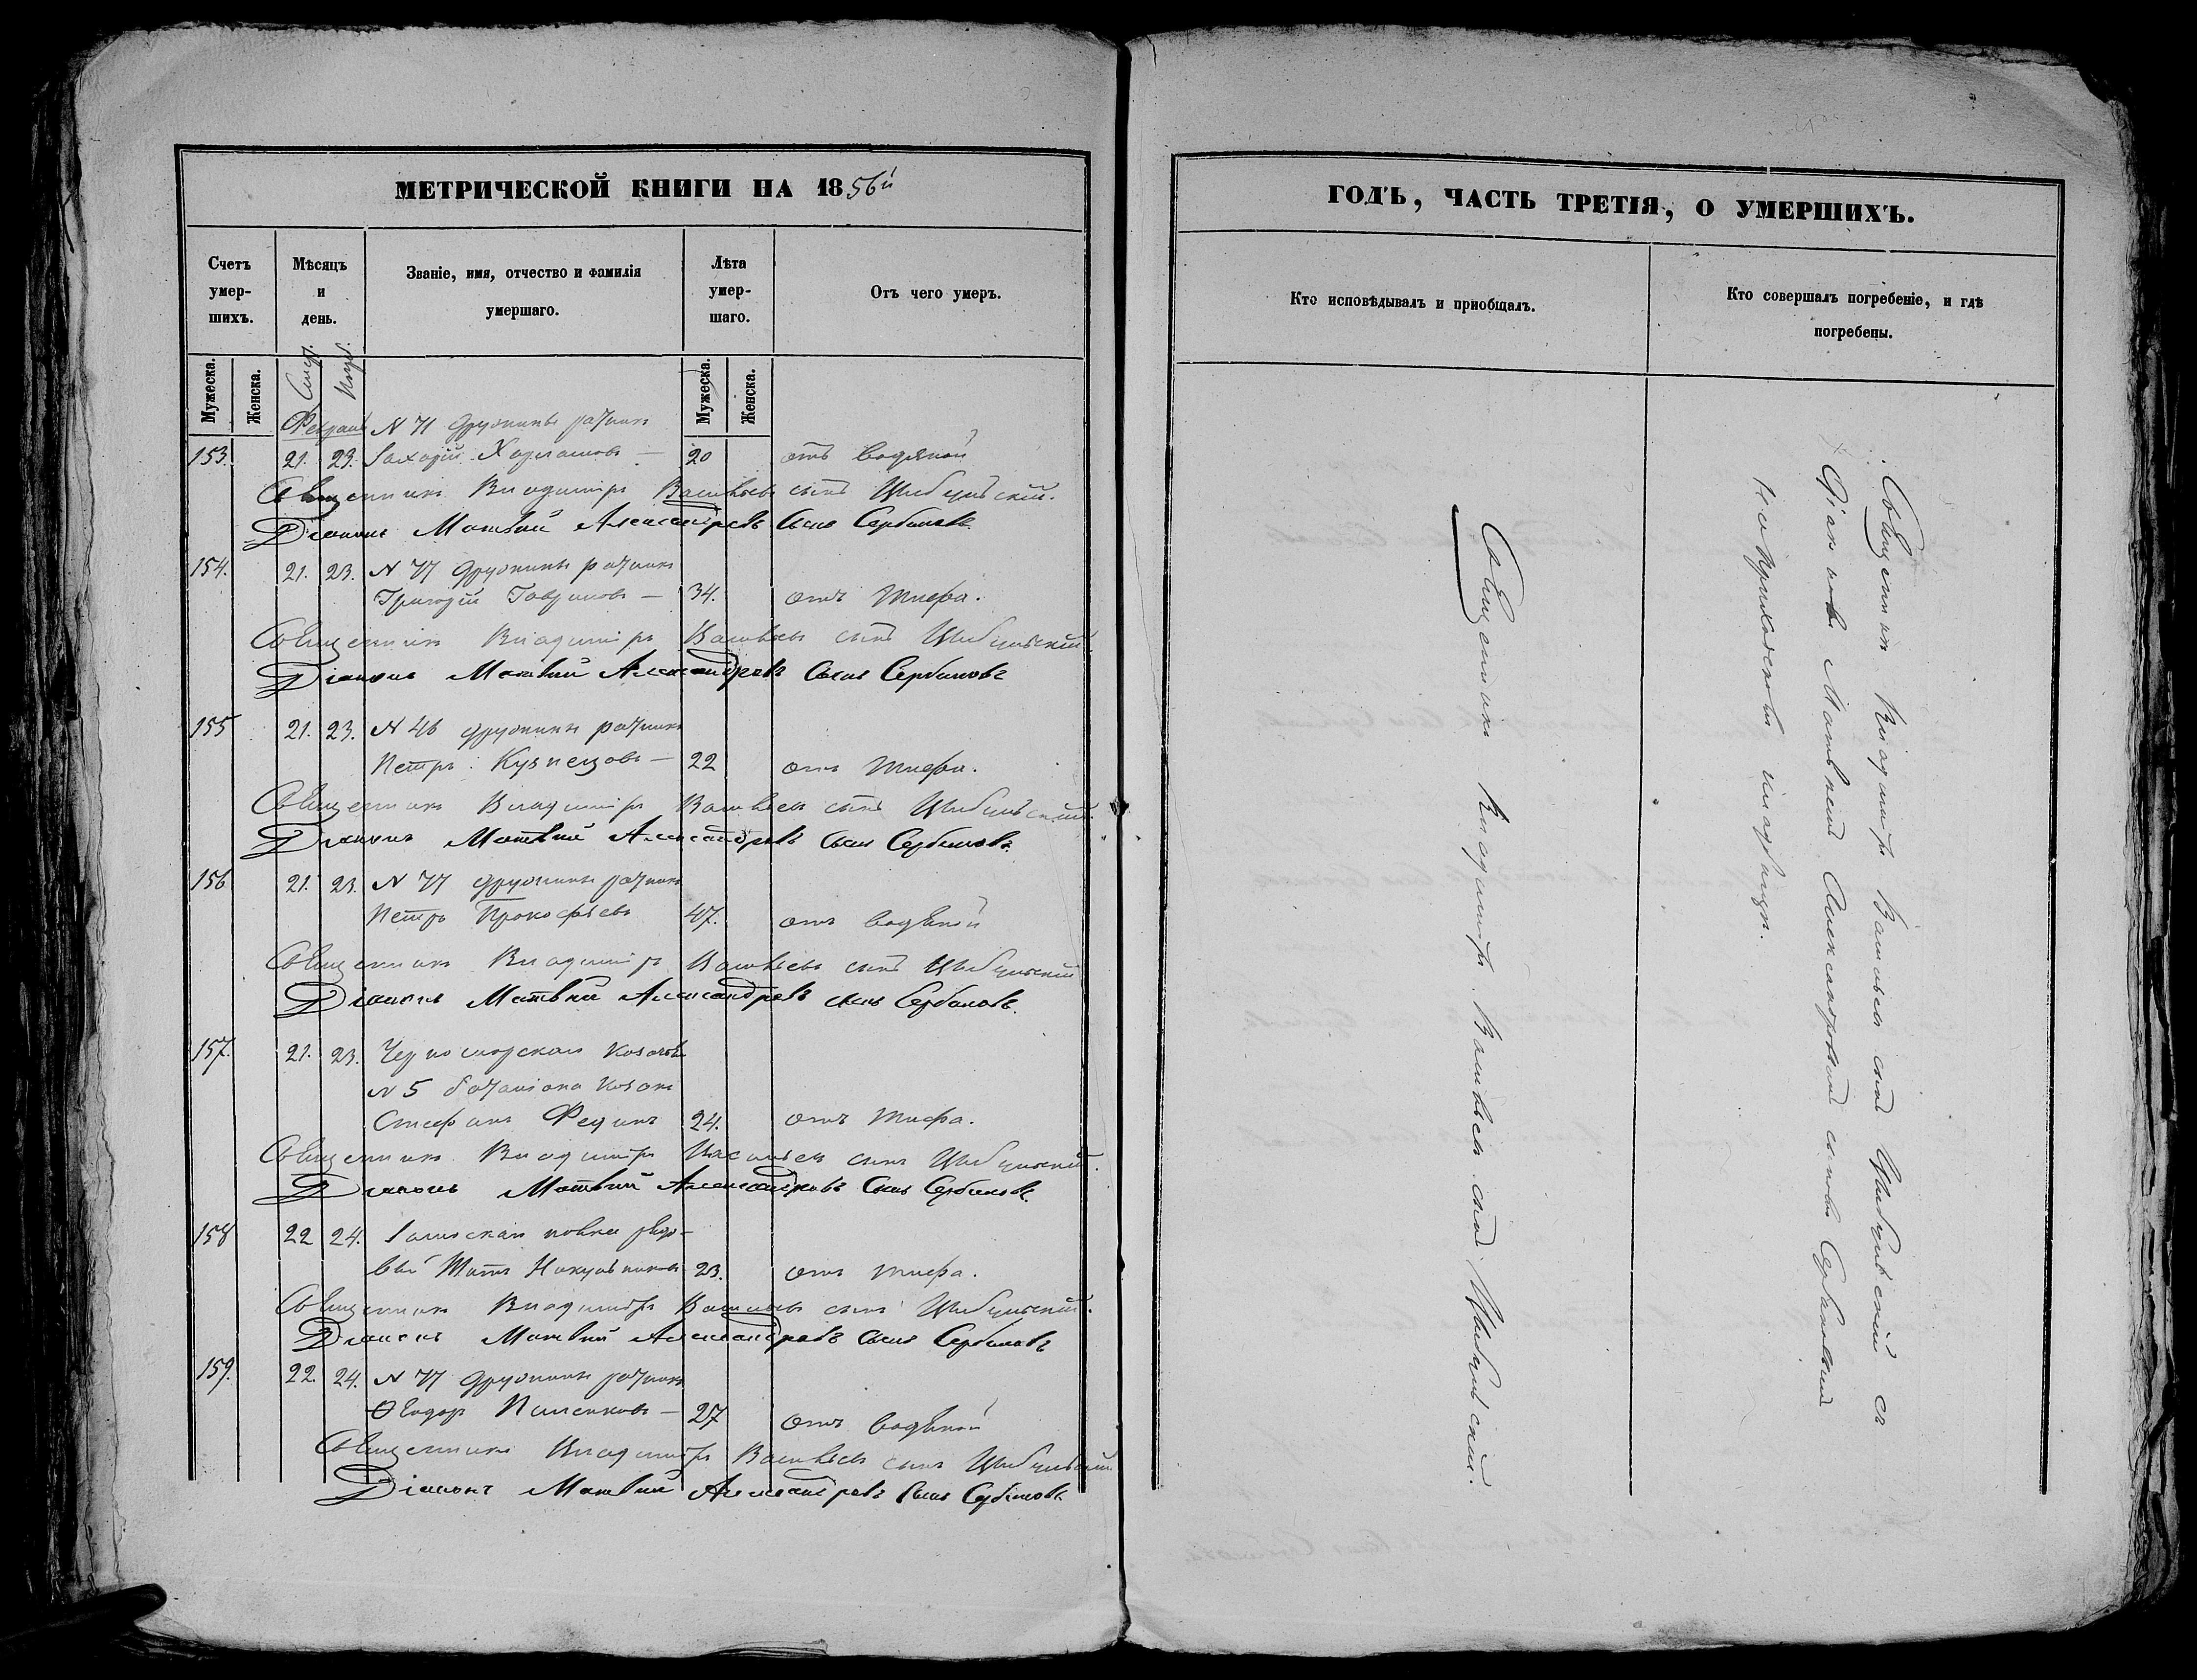 МЕТРИЧЕСКОЙ КНИГИ НА 1856й
Счетъ умер-шихъ.
Мѣсяцъ и день.
Званіе, имя, отчество и фамилія умершаго.
Лѣта умер-шаго.
Отъ чего умеръ.
Мужеска. Женска.
Мужеска. Женска.
Февраль N 71 дружины ратникъ
153. 21. 23. 20 отъ водяной
Священникъ Владиміръ Васильевъ сынъ Цыбульскій.
Діаконъ Матвѣй Александровъ сынъ Сербиновъ.
154. 21. 23. N 77 дружины ратникъ
Григорій Гавриловъ — 34. отъ тифа.
Священникъ Владиміръ Васильевъ сынъ Цыбульскій.
Діаконъ Матвѣй Александровъ сынъ Сербиновъ
155 21. 23. N 46 дружины ратникъ
Петръ Кузнецовъ — 22 отъ тифа.
Священникъ Владиміръ Васильевъ сынъ Цыбульскій.
Діаконъ Матвѣй Александровъ сынъ Сербиновъ.
156 21. 23. N 77 дружины ратникъ
Петръ Прокофьевъ 47. отъ водяной
Священникъ Владиміръ Васильевъ сынъ Цыбульскій
Діаконъ Матвѣй Александровъ сынъ Сербиновъ.
157. 21. 23. Черноморскаго
N 5 баталіона козакъ
Стефанъ 24. отъ тифа.
Священникъ Владиміръ Васильевъ сынъ Цыбульскій.
Діаконъ Матвѣй Александровъ сынъ Сербиновъ.
158 22 24. полка рядо-
вый 23. отъ тифа.
Священникъ Владиміръ Васильевъ сынъ Цыбульскій.
Діаконъ Матвѣй Александровъ сынъ Сербиновъ
159. 22. 24. N 77 дружины ратникъ
Ѳеодоръ — 27 отъ водяной
Священникъ Владиміръ Васильевъ сынъ Цыбульскій
Діаконъ Матвѣй Александровъ сынъ Сербиновъ
ГОДЪ, ЧАСТЬ ТРЕТІЯ, О УМЕРШИХЪ.
Кто исповѣдывалъ и пріобщалъ.
Кто совершалъ погребеніе, и гдѣ погребены.
Священникъ Владиміръ Васильевъ сынъ Цыбульскій.
Священникъ Владиміръ Васильевъ сынъ Цыбульскій съ
Діакономъ Матвѣемъ Александровымъ сыномъ Сербиновымъ
на приходскомъ кладбищѣ.